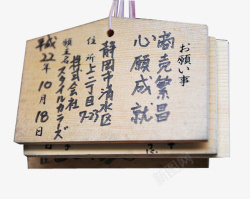 お願い事
商売繁昌
心願成就
住所
静岡市清水区
上二丁目7-23
願主名
株式会社
スタイルカラーズ
平成22年10月18日